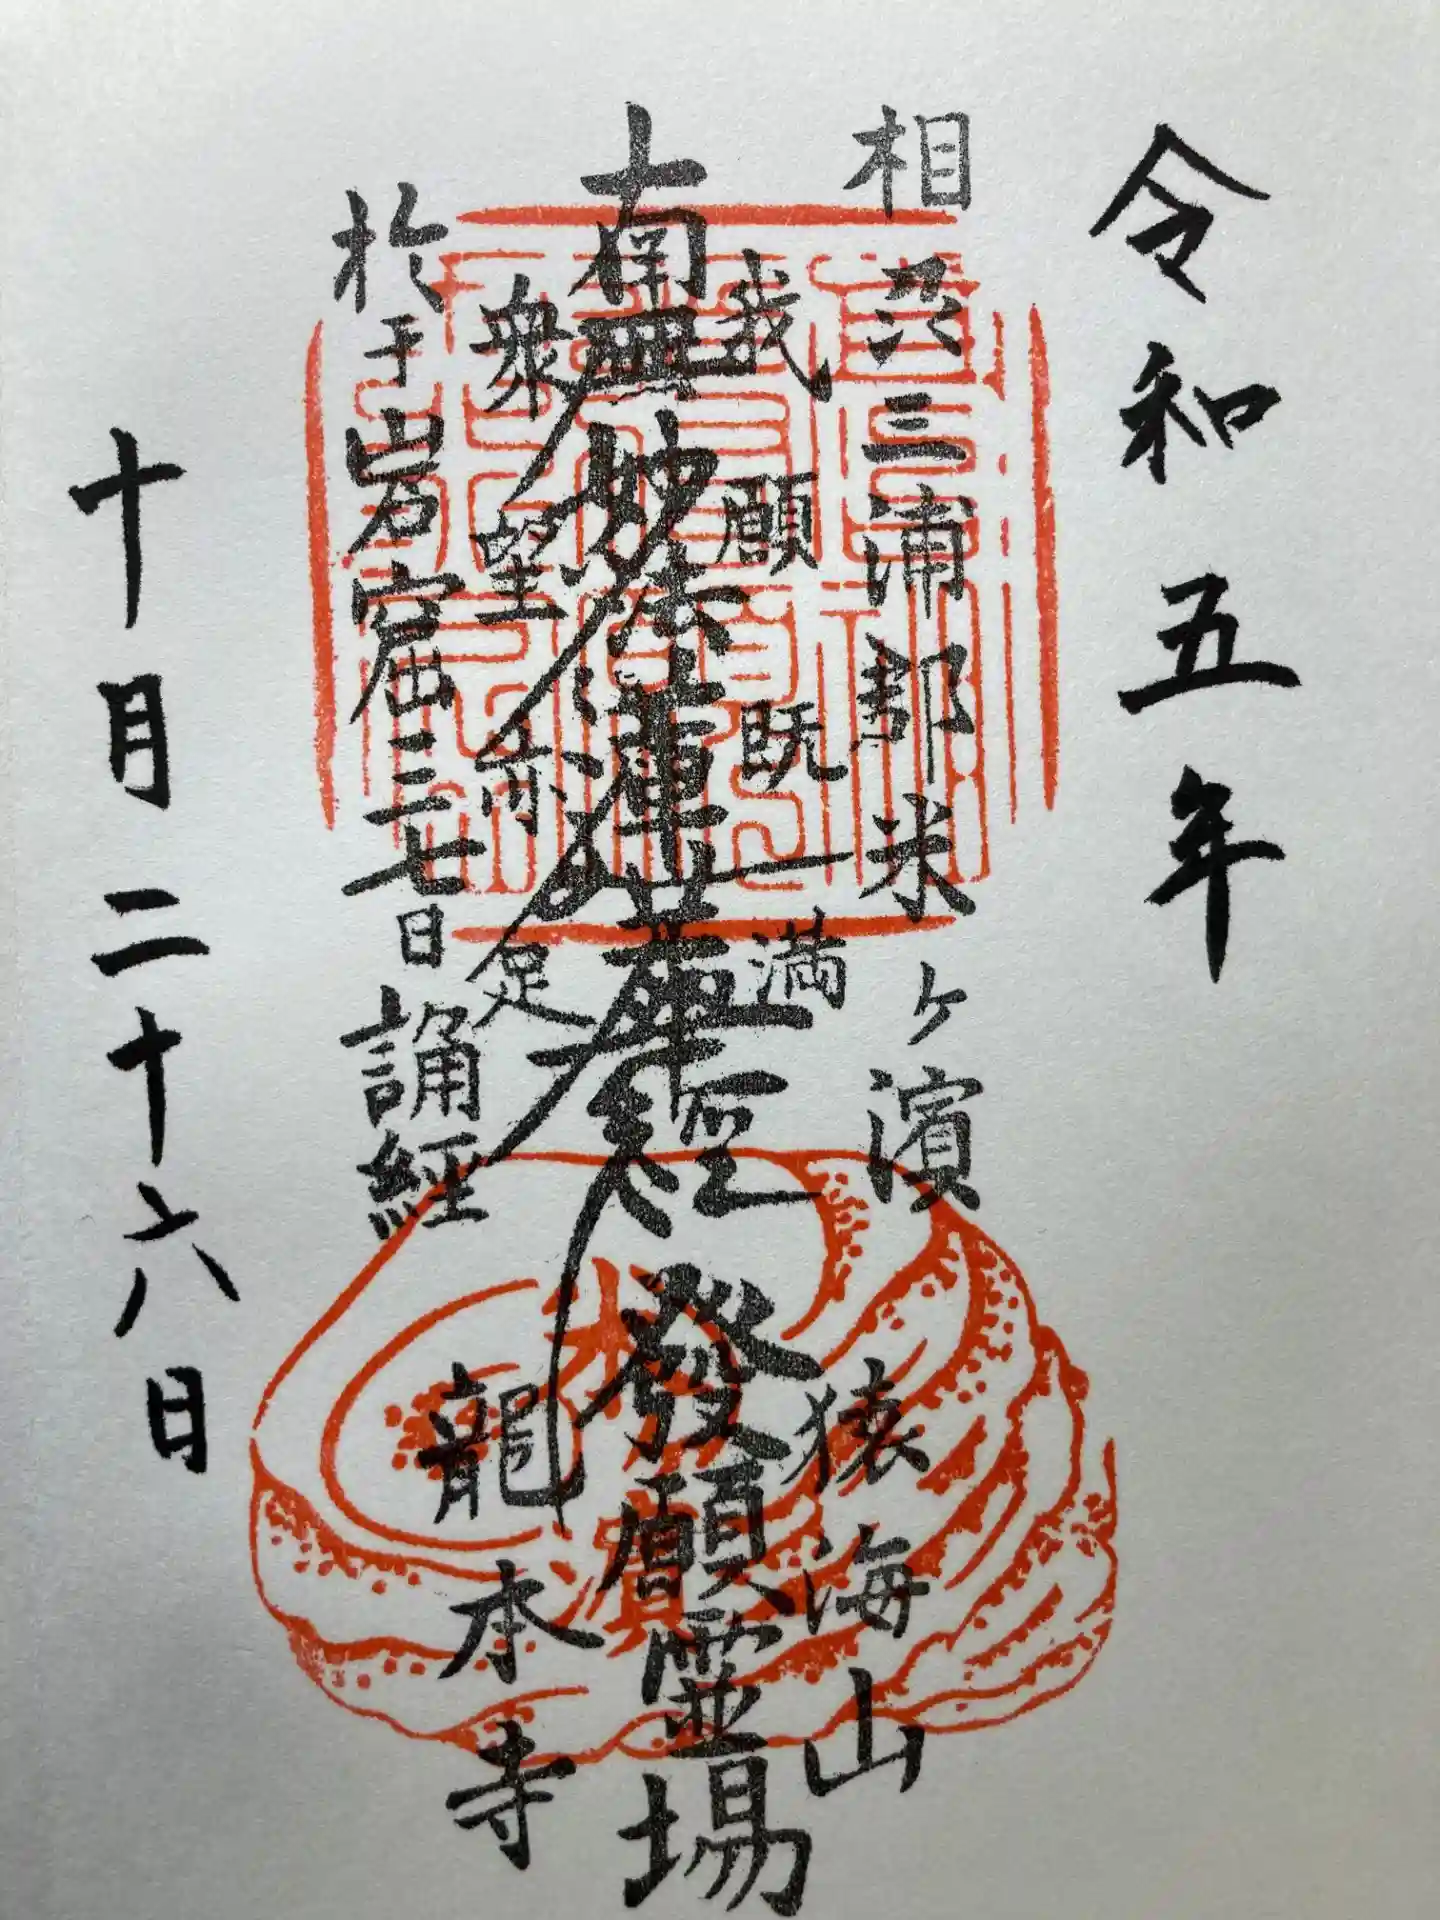 令和五年
相州三浦郡米ヶ濱
猿海山
我願既満
南無妙法蓮華經
發願霊場
衆望亦足
龍本寺
於于岩窟三七日誦經
十月二十六日
米濱